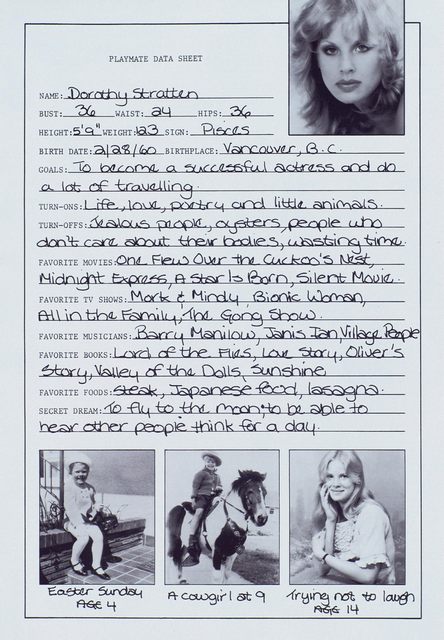 PLAYMATE DATA SHEET
NAME: Dorothy Stratten
BUST: 36 WAIST: 24 HIPS: 36
HEIGHT: 5'9" WEIGHT: 123 SIGN: Pisces
BIRTH DATE: 2/28/60 BIRTHPLACE: Vancouver, B.C.
GOALS: To become a successful actress and do
a lot of travelling.
TURN-ONS: Life, love, poetry and little animals.
TURN-OFFS: Jealous people, oysters, people who
don't care about their bodies, wasting time.
FAVORITE MOVIES: One Flew Over the Cuckoo's Nest,
Midnight Express, A Star Is Born, Silent Movie.
FAVORITE TV SHOWS: Mork & Mindy, Bionic Woman,
All in the Family, The Gong Show.
FAVORITE MUSICIANS: Barry Manilow, Janis Ian, Village People
FAVORITE BOOKS: Lord of the Flies, Love Story, Oliver's
Story, Valley of the Dolls, Sunshine
FAVORITE FOODS: steak, Japanese food, lasagna.
SECRET DREAM: To fly to the moon; to be able to
hear other people think for a day.
Easter Sunday
AGE 4
A cowgirl at 9
Trying not to laugh
AGE 14